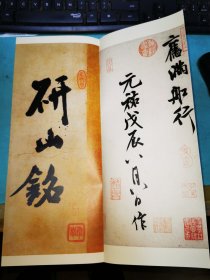 舊滿船行
元祐戊辰八月八日作
研山銘